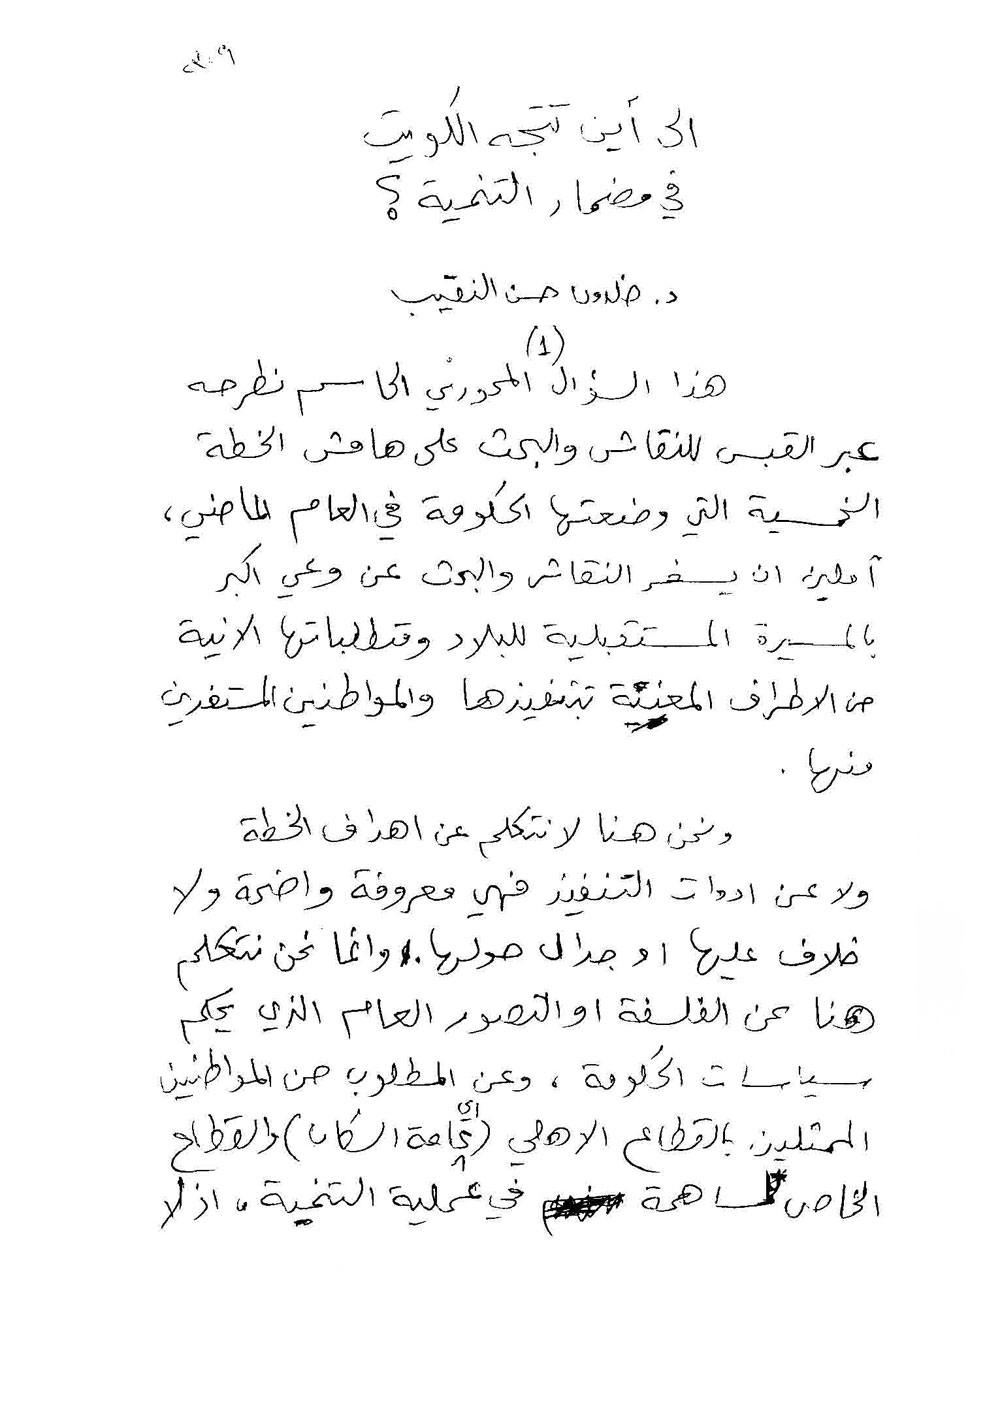 الى أين تتجه الكويت
في مضمار التنمية ؟
د. خلدون حسن النقيب
(1)
هذا السؤال المحوري الحاسم نطرحه
عبر القبس للنقاش والبحث على هامش الخطة
الخمسية التي وضعتها الحكومة في العام الماضي،
آملين ان يسفر النقاش والبحث عن وعي اكبر
بالمسيرة المستقبلية للبلاد ومتطلباتها الانية
من الاطراف المعنيّة بتنفيذها والمواطنين المستفدين
منها .
ونحن هنا لا نتكلم عن اهداف الخطة
ولا عن ادوات التنفيذ فهي معروفة واضحة ولا
خلاف عليها او جدال حولها. وانما نحن نتكلم
هنا عن الفلسفة او التصور العام الذي يحكم
سياسات الحكومة ، وعن المطلوب من المواطنين
الممثلين بالقطاع الاهلي (اي عامة السكان) والقطاع
الخاص للمساهمة في عملية التنمية ، اذ لا